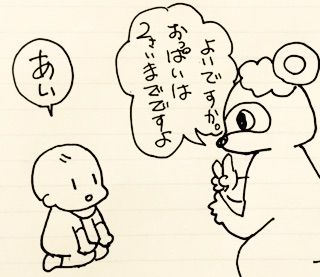 よいですか。
おっぱいは
2さいまでですよ
あい